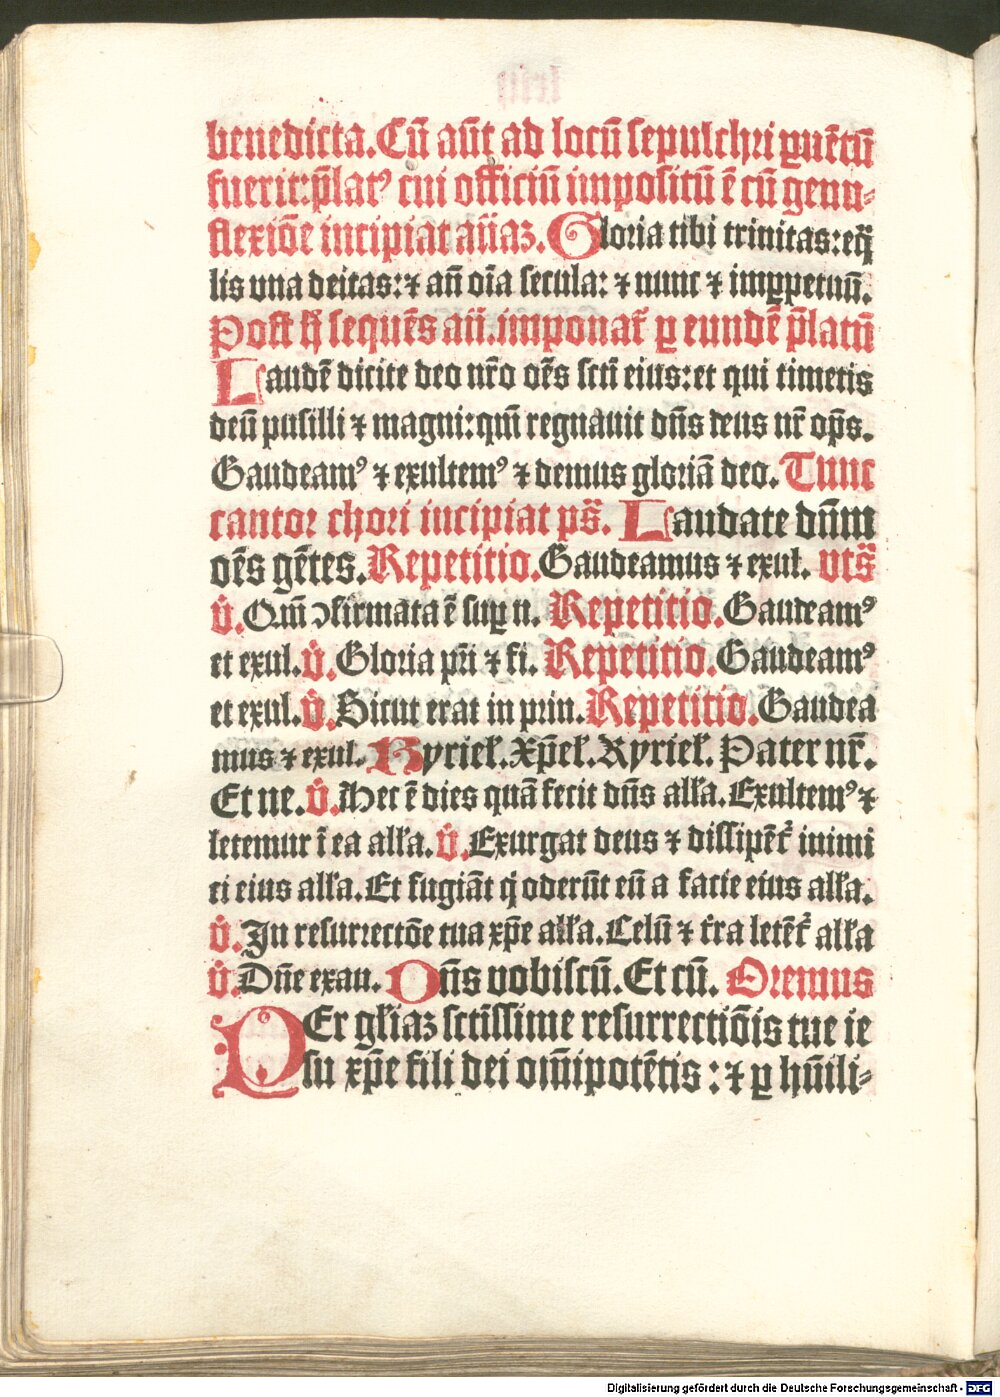 benedicta. Cū aūt ad locū sepulchri ꝑuētū
fuerit: p̄latꝰ cui officiū impositū ē cū genu⸗
flexiōe incipiat añaꝫ. Gloria tibi trinitas: eq̄
lis vna deitas: ⁊ añ oīa secula: ⁊ nunc ⁊ imꝑpetuū.
Post h̄ sequēs añ. imponat̄ ꝑ eundē p̄latū
Laudē dicite deo nr̄o oēs scti eius: et qui timetis
deū pusilli ⁊ magni: qm̄ regnauit dn̄s deus nr̄ op̄s.
Gaudeamꝰ ⁊ exultemꝰ ⁊ demus gloriā deo. Tunc
cantor chori incipiat ps̄. Laudate dūm
oēs gētes. Repetitio. Gaudeamus ⁊ exul. vts̄
v̊. Qm̄ ↄfirmata ē suꝑ n. Repetitio. Gaudeamꝰ
et exul. v̊. Gloria pr̄i ⁊ fi. Repetitio. Gaudeamꝰ
et exul. v̊. Sicut erat in prin. Repetitio. Gaudea
mus ⁊ exul. Kyriel̄. Xp̄el̄. Kyriel̄. Pater nr̄.
Et ne. v̊. Hec ē dies quā fecit dn̄s all̄a. Exultemꝰ ⁊
letemur ī ea all̄a. v̊. Exurgat deus ⁊ dissipēt᷑ inimi
ci eius all̄a. Et fugiāt q̇ oderūt eū a facie eius all̄a.
v̊. In resurrectōe tua xp̄e all̄a. Celū ⁊ t̄ra letēt᷑ all̄a
v̊. Dn̄e exau. Dn̄s vobiscū. Et cū. Oremus
PEr gl̄iaꝫ sctīssime resurrectiōis tue ie
su xp̄e fili dei om̄ipotētis: ⁊ ꝑ hūili⸗
Digitalisierung gefördert durch die Deutsche Forschungsgemeinschaft - DFG